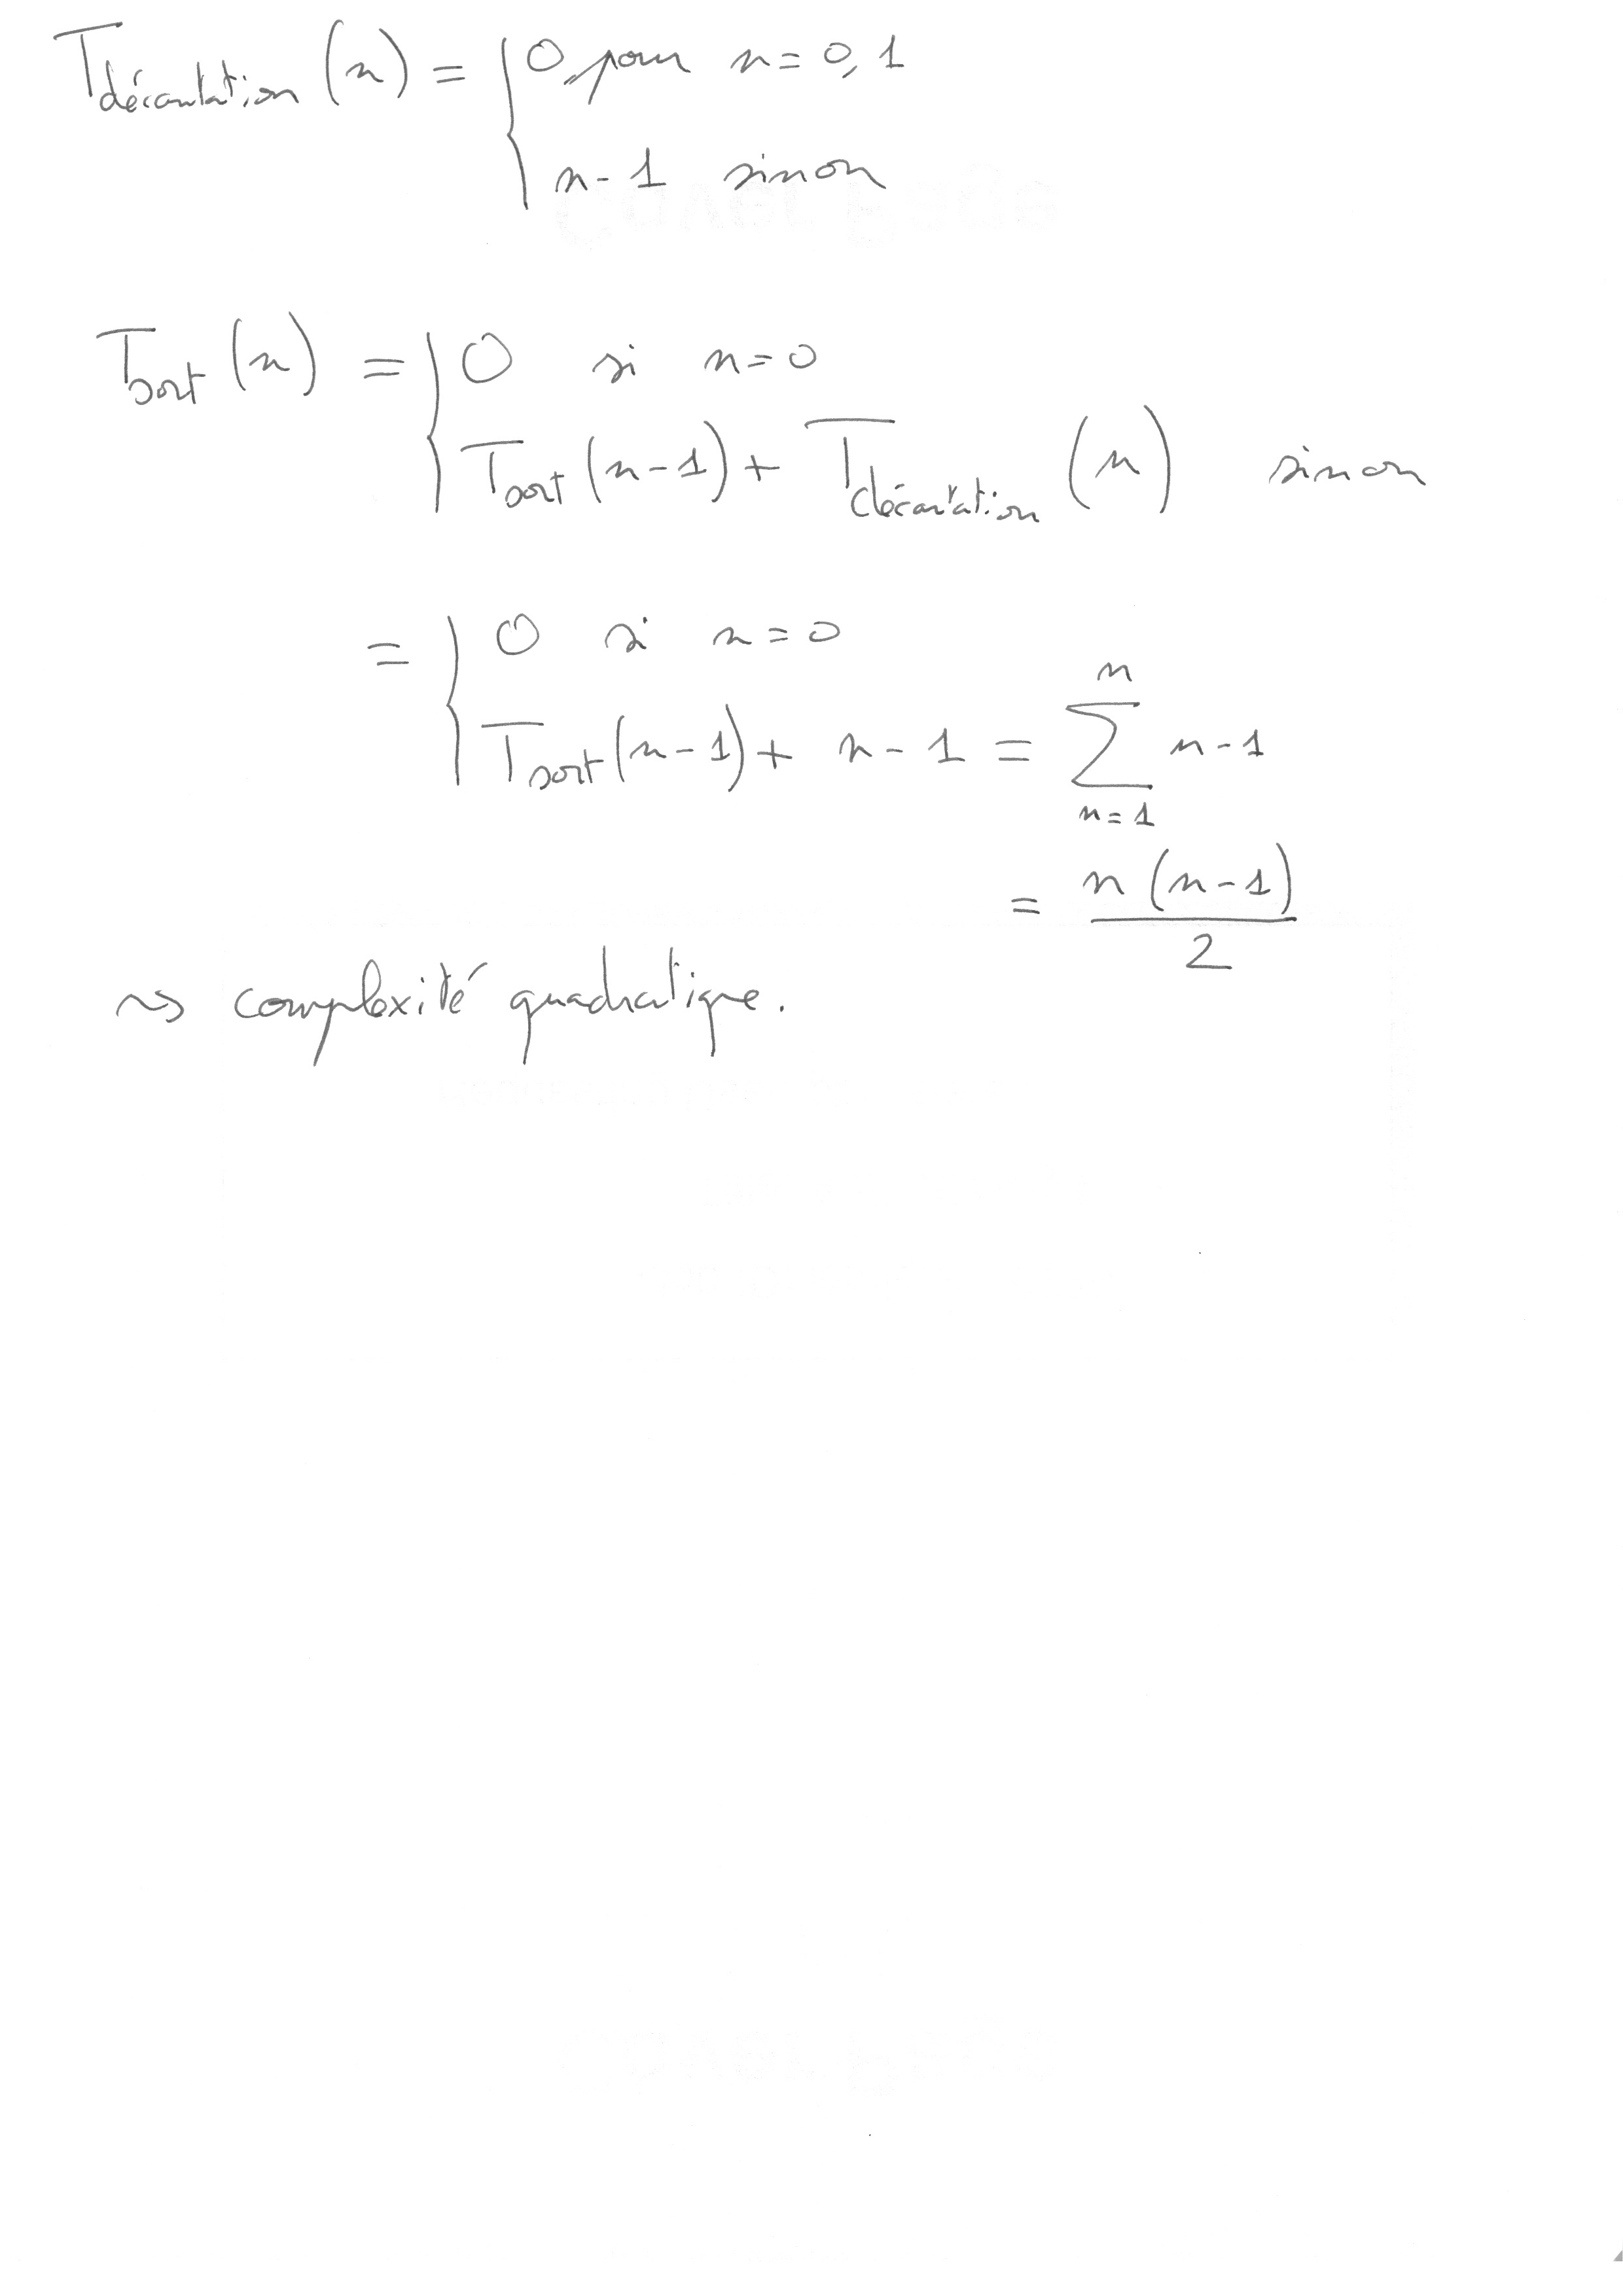 T_décantation (n) = { 0 pour n = 0, 1
n - 1 sinon
T_sort (n) = { 0 si n = 0
T_sort (n - 1) + T_décantation (n) sinon
= { 0 si n = 0
T_sort (n - 1) + n - 1 = ∑_{n=1}^{n} n - 1
= n (n - 1) / 2
⇝ complexité quadratique.